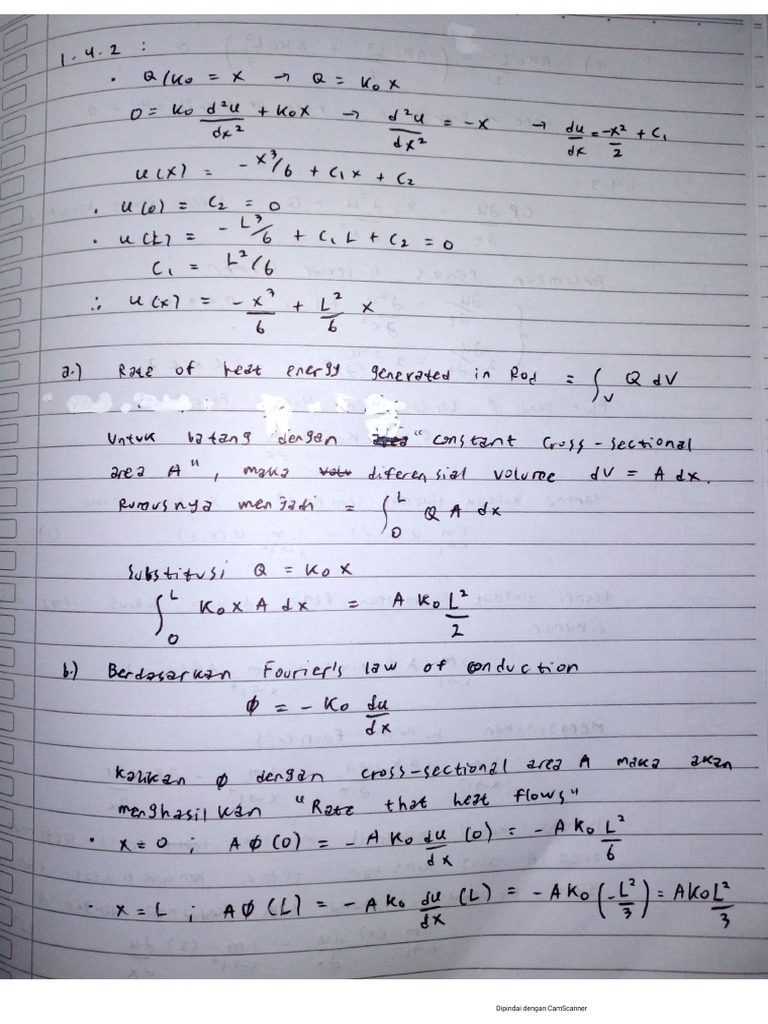 1.4.2 :
• Q/K₀ = x → Q = K₀ x
0 = K₀ d²u/dx² + K₀x → d²u/dx² = -x → du/dx = -x²/2 + C₁
u(x) = -x³/6 + C₁x + C₂
• u(0) = C₂ = 0
• u(L) = -L³/6 + C₁ L + C₂ = 0
C₁ = L²/6
∴ u(x) = -x³/6 + L²/6 x
a.) Rate of heat energy generated in Rod = ∫_V Q dV
Untuk batang dengan "constant cross-sectional
area A", maka diferensial volume dV = A dx.
Rumusnya menjadi = ∫₀^L Q A dx
Substitusi Q = K₀ x
∫₀^L K₀ x A dx = A K₀ L²/2
b.) Berdasarkan Fourier's law of conduction
ϕ = - K₀ du/dx
Kalikan ϕ dengan cross-sectional area A maka akan
menghasilkan "Rate that heat flows"
• x = 0 ; A ϕ (0) = - A K₀ du/dx (0) = - A K₀ L²/6
• x = L ; A ϕ (L) = - A K₀ du/dx (L) = - A K₀ (-L²/3) = A K₀ L²/3
Dipindai dengan CamScanner